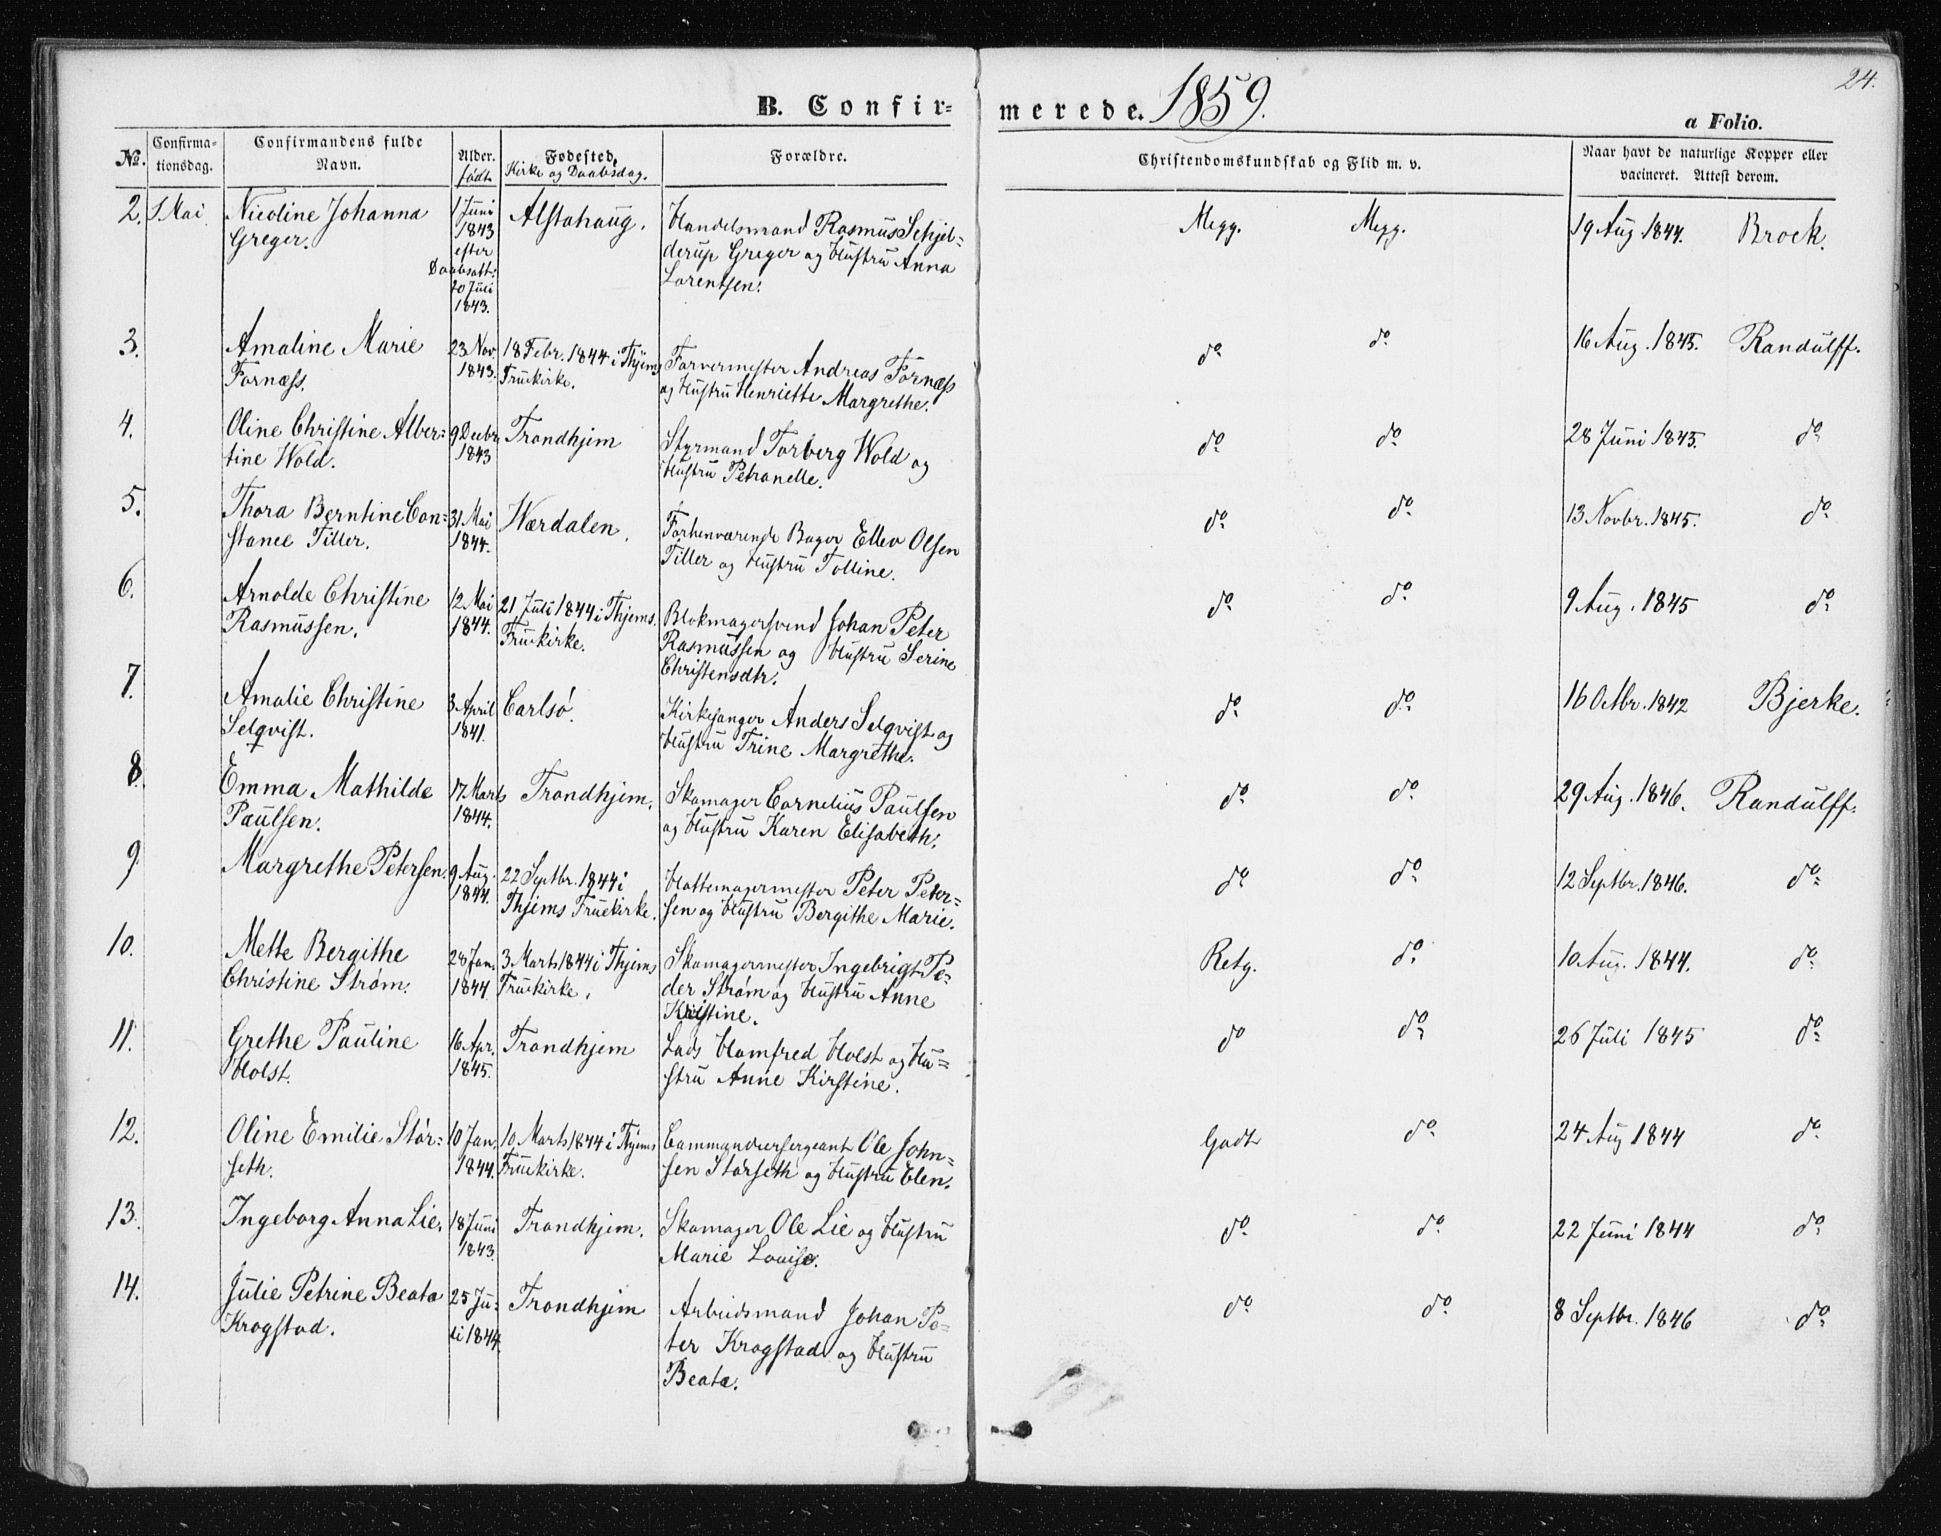 24.
B. Confir=
merede. 1859.
a Folio.
No.
Confirma-
tionsdag.
Confirmandens fulde
Navn.
Alder.
født
Fødested,
Kirke og Daabsdag.
Forældre.
Christendomskundskab og Flid m. v.
Naar havt de naturlige Kopper eller
vacineret. Attest derom.
2. 1 Mai Nicoline Johanna
Greger.
1 Juni
1843
efter
Daabsatt:
20 Juli
1843.
Alstahaug.
Handelsmand Rasmus Schjel=
derup Greger og Hustru Anna
Lorentsen.
Megg. Megg. 19 Aug 1844. Brock.
3. Amaline Marie
Fornæss.
23 Nov.
1843.
18 Febr. 1844 i Thjems
Fruekirke.
Farvermester Andreas Fornæss
og Hustru Henriette Margrethe.
do do 16 Aug. 1845. Randulff.
4. Oline Christine Alber=
tine Wold.
9 Decbr
1843
Trondhjem
Styrmand Torberg Wold og
Hustru Petranelle.
do do 28 Juni 1845. do
5. Thora Berntine Con=
stance Tiller.
31 Mai
1844.
Værdalen.
Forhenværende Bager Ellev Olsen
Tiller og Hustru Tolline.
do do 13 Novbr. 1845. do
6. Arnolde Christine
Rasmussen.
12 Mai
1844.
21 Juli 1844 i Thjems.
Fruekirke.
Blokmagersvend Johan Peter
Rasmussen og Hustru Serine
Christensdtr.
do do 9 Aug. 1845 do
7. Amalie Christine
Selqvist.
3 April
1841.
Carlsö.
Kirkesanger Anders Selqvist og
Hustru Trine Margrethe.
do do 16 Octbr. 1842 Bjerke.
8. Emma Mathilde
Paulsen.
17 Marts
1844.
Trondhjem.
Skomager Cornelius Paulsen
og Hustru Karen Elisabeth.
do do 29 Aug. 1846. Randulff.
9 Margrethe Petersen.
9 Aug.
1844.
22 Septbr. 1844 i
Thjems Fruekirke.
Hattemagermester Peter Peter=
sen og Hustru Bergithe Marie.
do do 12 Septbr. 1846. do
10. Mette Bergithe
Christine Strøm.
28 Jan.
1844.
3 Marts 1844 i Thjems
Fruekirke.
Skomagermester Ingebrigt Pe=
der Strøm og Hustru Anne
Kristine.
Retg. do 10 Aug. 1844. do
11. Grethe Pauline
Holst.
16 Apr.
1845.
Trondhjem
Lods Hamfred Holst og Hu=
stru Anne Kirstine.
do do 26 Juli 1845 do
12. Oline Emilie Stör=
seth.
10 Jan.
1844.
10 Marts 1844 i Thjems
Fruekirke.
Commandeersergeant Ole John=
sen Störseth og Hustru Elen.
Godt do 24 Aug 1844 do
13. Ingeborg Anna Lie.
18 Juni
1843.
Trondhjem.
Skomager Ole Lie og Hustru
Marie Louise.
do do 22 Juni 1844 do
14. Julie Petrine Beata
Krogstad.
25 Ju=
li 1844.
Trondhjem
Arbeidsmand Johan Pe=
ter Krogstad og Hustru
Beata.
do do 8 Septbr. 1846 do